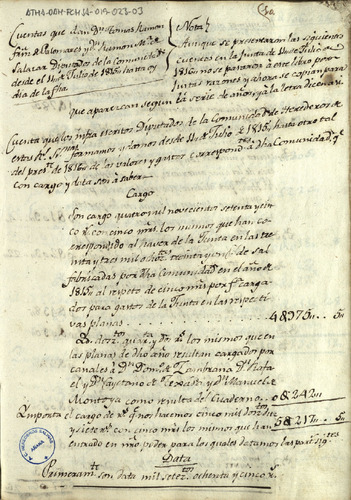 ATHA-DAH-FCH-14-019-023-03
Cuentas que dan Dn. Tomas Ramon
Fñz. de Palomares y Dn. Ramon Mz. de
Salazar Diputados de la Comunidad
desde el 11 de Julio de 1815 hasta oy
dia de la fha.
Nota
Aunque se presentaron las siguientes
cuentas en la Junta de 11 de Julio de
1816 no se pasaron a este libro por
justas razones y ahora se copian para
que aparezcan segun la serie de años, y a la letra dicen asi.
Cuenta que los infraescritos Diputados de la Comunidad de Herederos de
formamos y damos desde 11 de Julio de 1815 hasta otro tal
del pres.te de 1816 de los valores y gastos correspond.tes a dha Comunidad, q.e
con cargo y data son a saber
Cargo
Son cargo quatro mil novecientos setenta y cin
co r.s con cinco mrs. los mismos que han co
rrespondido al haver de la Junta en las tre
inta y tres mil ocho.tas treinta y f.s de sal
fabricadas por dha Comunidad en el año de
1815 al respeto de cinco mrs. por f.a carga
dos para gastos de la Junta en las respecti
vas planas 4897 5
doz.tos quar.ta y dos r.s los mismos que en
las planas de dho año resultan cargados por
canales a Dn. Zambrana Dn. Rafa
el y Dn. Cayetano de Texada, y Dn. Manuel de
Montoya como resulta del Cuaderno 0242
Importa el cargo de q.e nos hacemos cinco mil doz.tos
y siete r.s con cinco mrs. los mismos que han 5217 5
entrado en nro poder para los quales datamos las par.s sig.tes
Data
Primeram.te son data mil setez.tos ochenta y cinco r.s